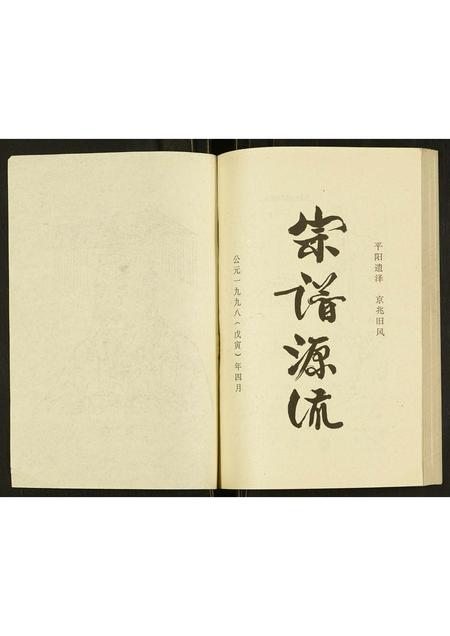 平阳遗泽 京兆旧风
宗谱源流
公元一九九八(戊寅)年四月